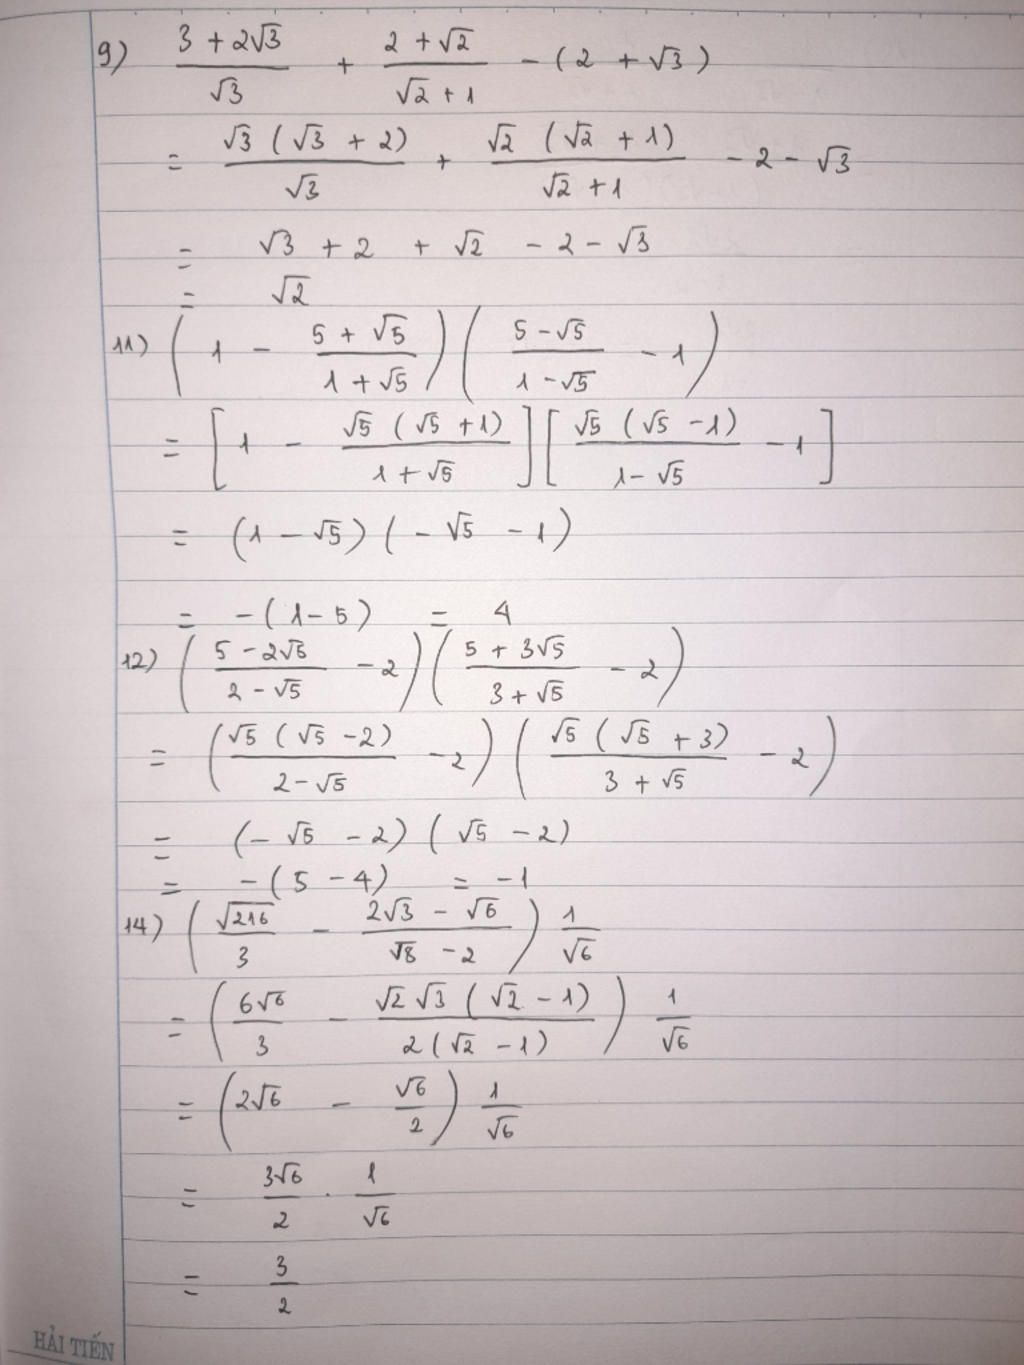 9) (3 + 2√3)/√3 + (2 + √2)/(√2 + 1) - (2 + √3)
= √3 (√3 + 2)/√3 + √2 (√2 + 1)/(√2 + 1) - 2 - √3
= √3 + 2 + √2 - 2 - √3
= √2
11) (1 - (5 + √5)/(1 + √5)) ((5 - √5)/(1 - √5) - 1)
= [1 - √5 (√5 + 1)/(1 + √5)] [√5 (√5 - 1)/(1 - √5) - 1]
= (1 - √5) (- √5 - 1)
= -(1 - 5) = 4
12) ((5 - 2√5)/(2 - √5) - 2) ((5 + 3√5)/(3 + √5) - 2)
= (√5 (√5 - 2)/(2 - √5) - 2) (√5 (√5 + 3)/(3 + √5) - 2)
= (- √5 - 2) (√5 - 2)
= -(5 - 4) = -1
14) (√216/3 - (2√3 - √6)/(√8 - 2)) 1/√6
= (6√6/3 - √2 √3 (√2 - 1)/(2(√2 - 1))) 1/√6
= (2√6 - √6/2) 1/√6
= 3√6/2 . 1/√6
= 3/2
HẢI TIẾN